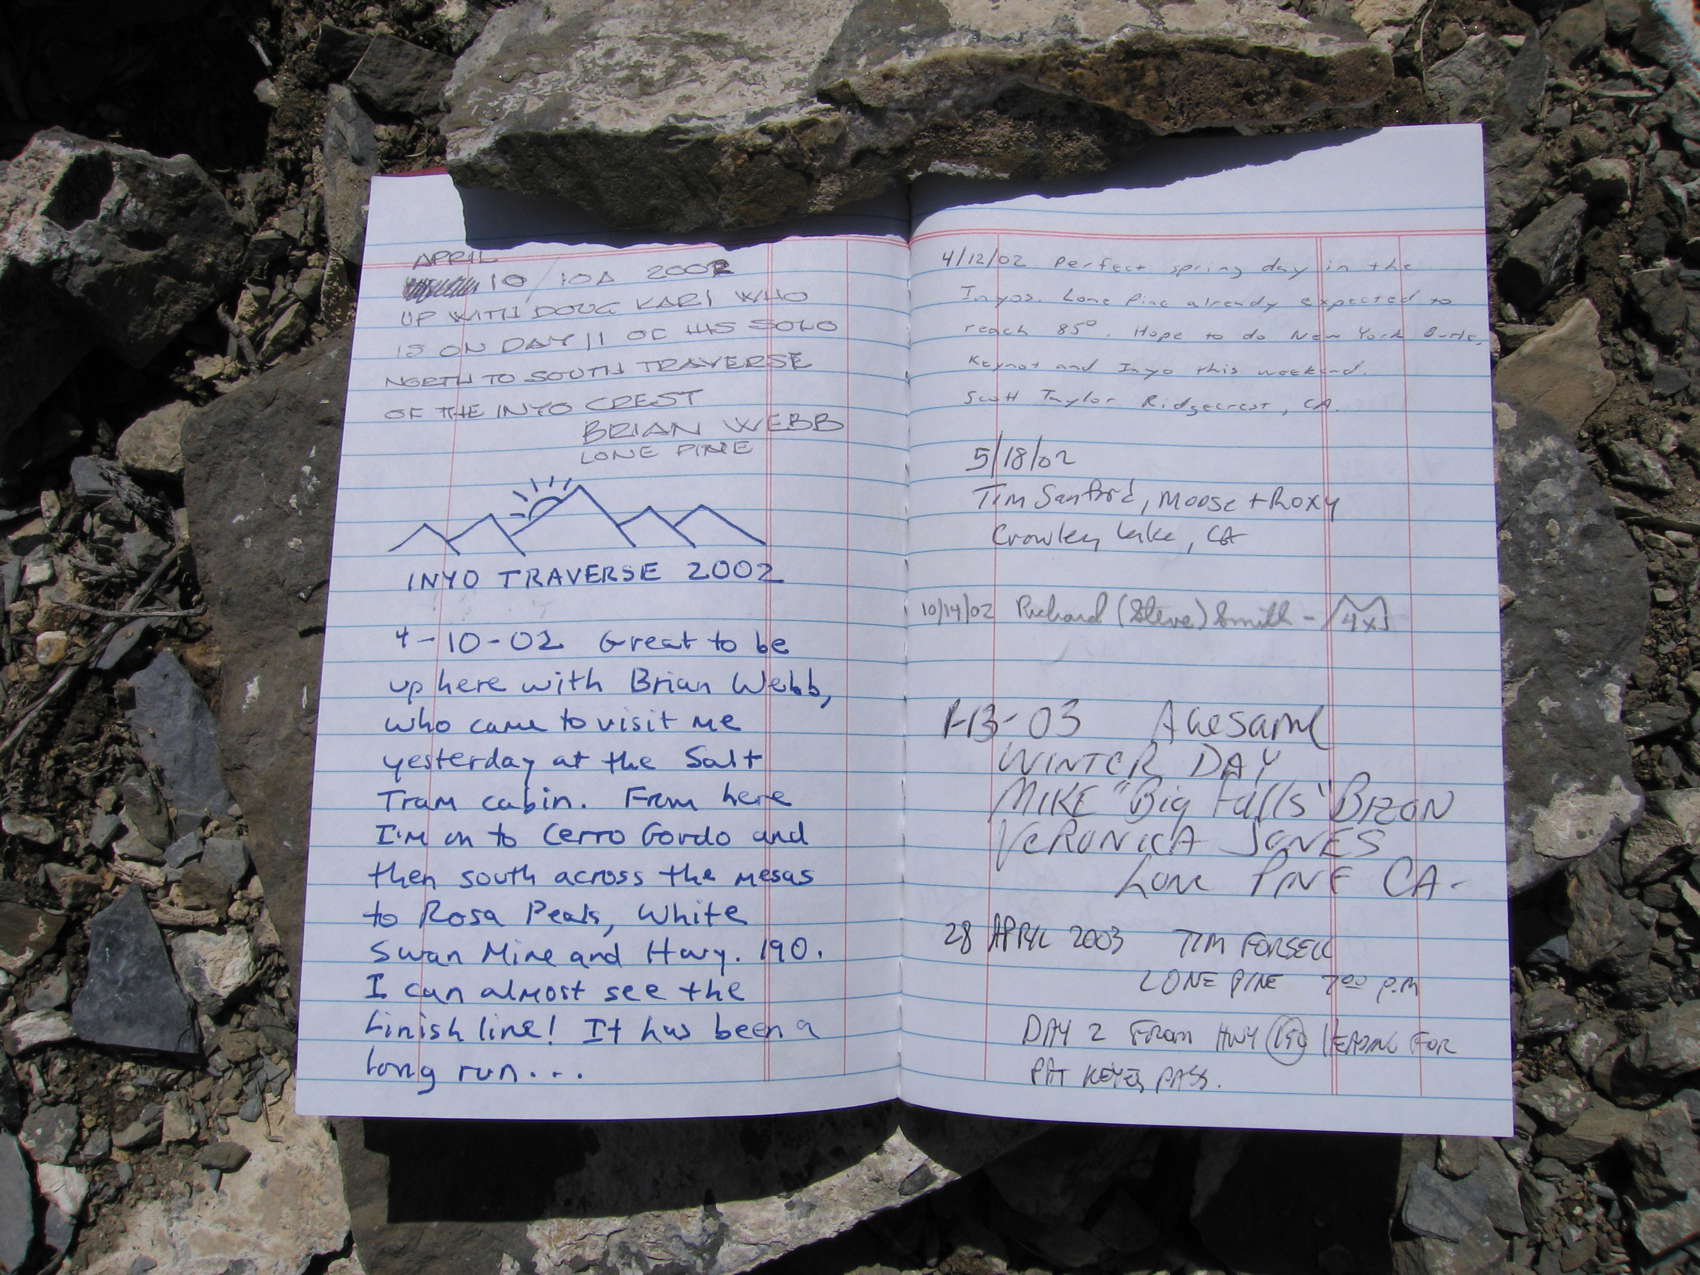 APRIL
10 / 10A 2002
UP WITH DOUG KARI WHO
IS ON DAY 11 OF HIS SOLO
NORTH TO SOUTH TRAVERSE
OF THE INYO CREST
BRIAN WEBB
LONE PINE
INYO TRAVERSE 2002
4-10-02 Great to be
up here with Brian Webb,
who came to visit me
yesterday at the Salt
Tram cabin. From here
I'm on to Cerro Gordo and
then south across the mesas
to Rosa Peaks, White
Swan Mine and Hwy. 190.
I can almost see the
finish line! It has been a
long run...
4/12/02 Perfect spring day in the
Inyos. Lone Pine already expected to
reach 85°. Hope to do New York Butte,
Keynot and Inyo this weekend.
Scott Taylor Ridgecrest, CA.
5/18/02
Tim Sanford, Moose + Roxy
Crowley Lake, CA
10/14/02 Richard (Steve) Smith - 4x
1-13-03 Awesame
WINTER DAY
MIKE "Big Falls"
VERONICA JONES
LONE PINE CA-
28 APRIL 2003 TIM FORSELL
LONE PINE 7 00 P.M
DAY 2 FROM HWY 190 HEADING FOR
PAT KEYES PASS.